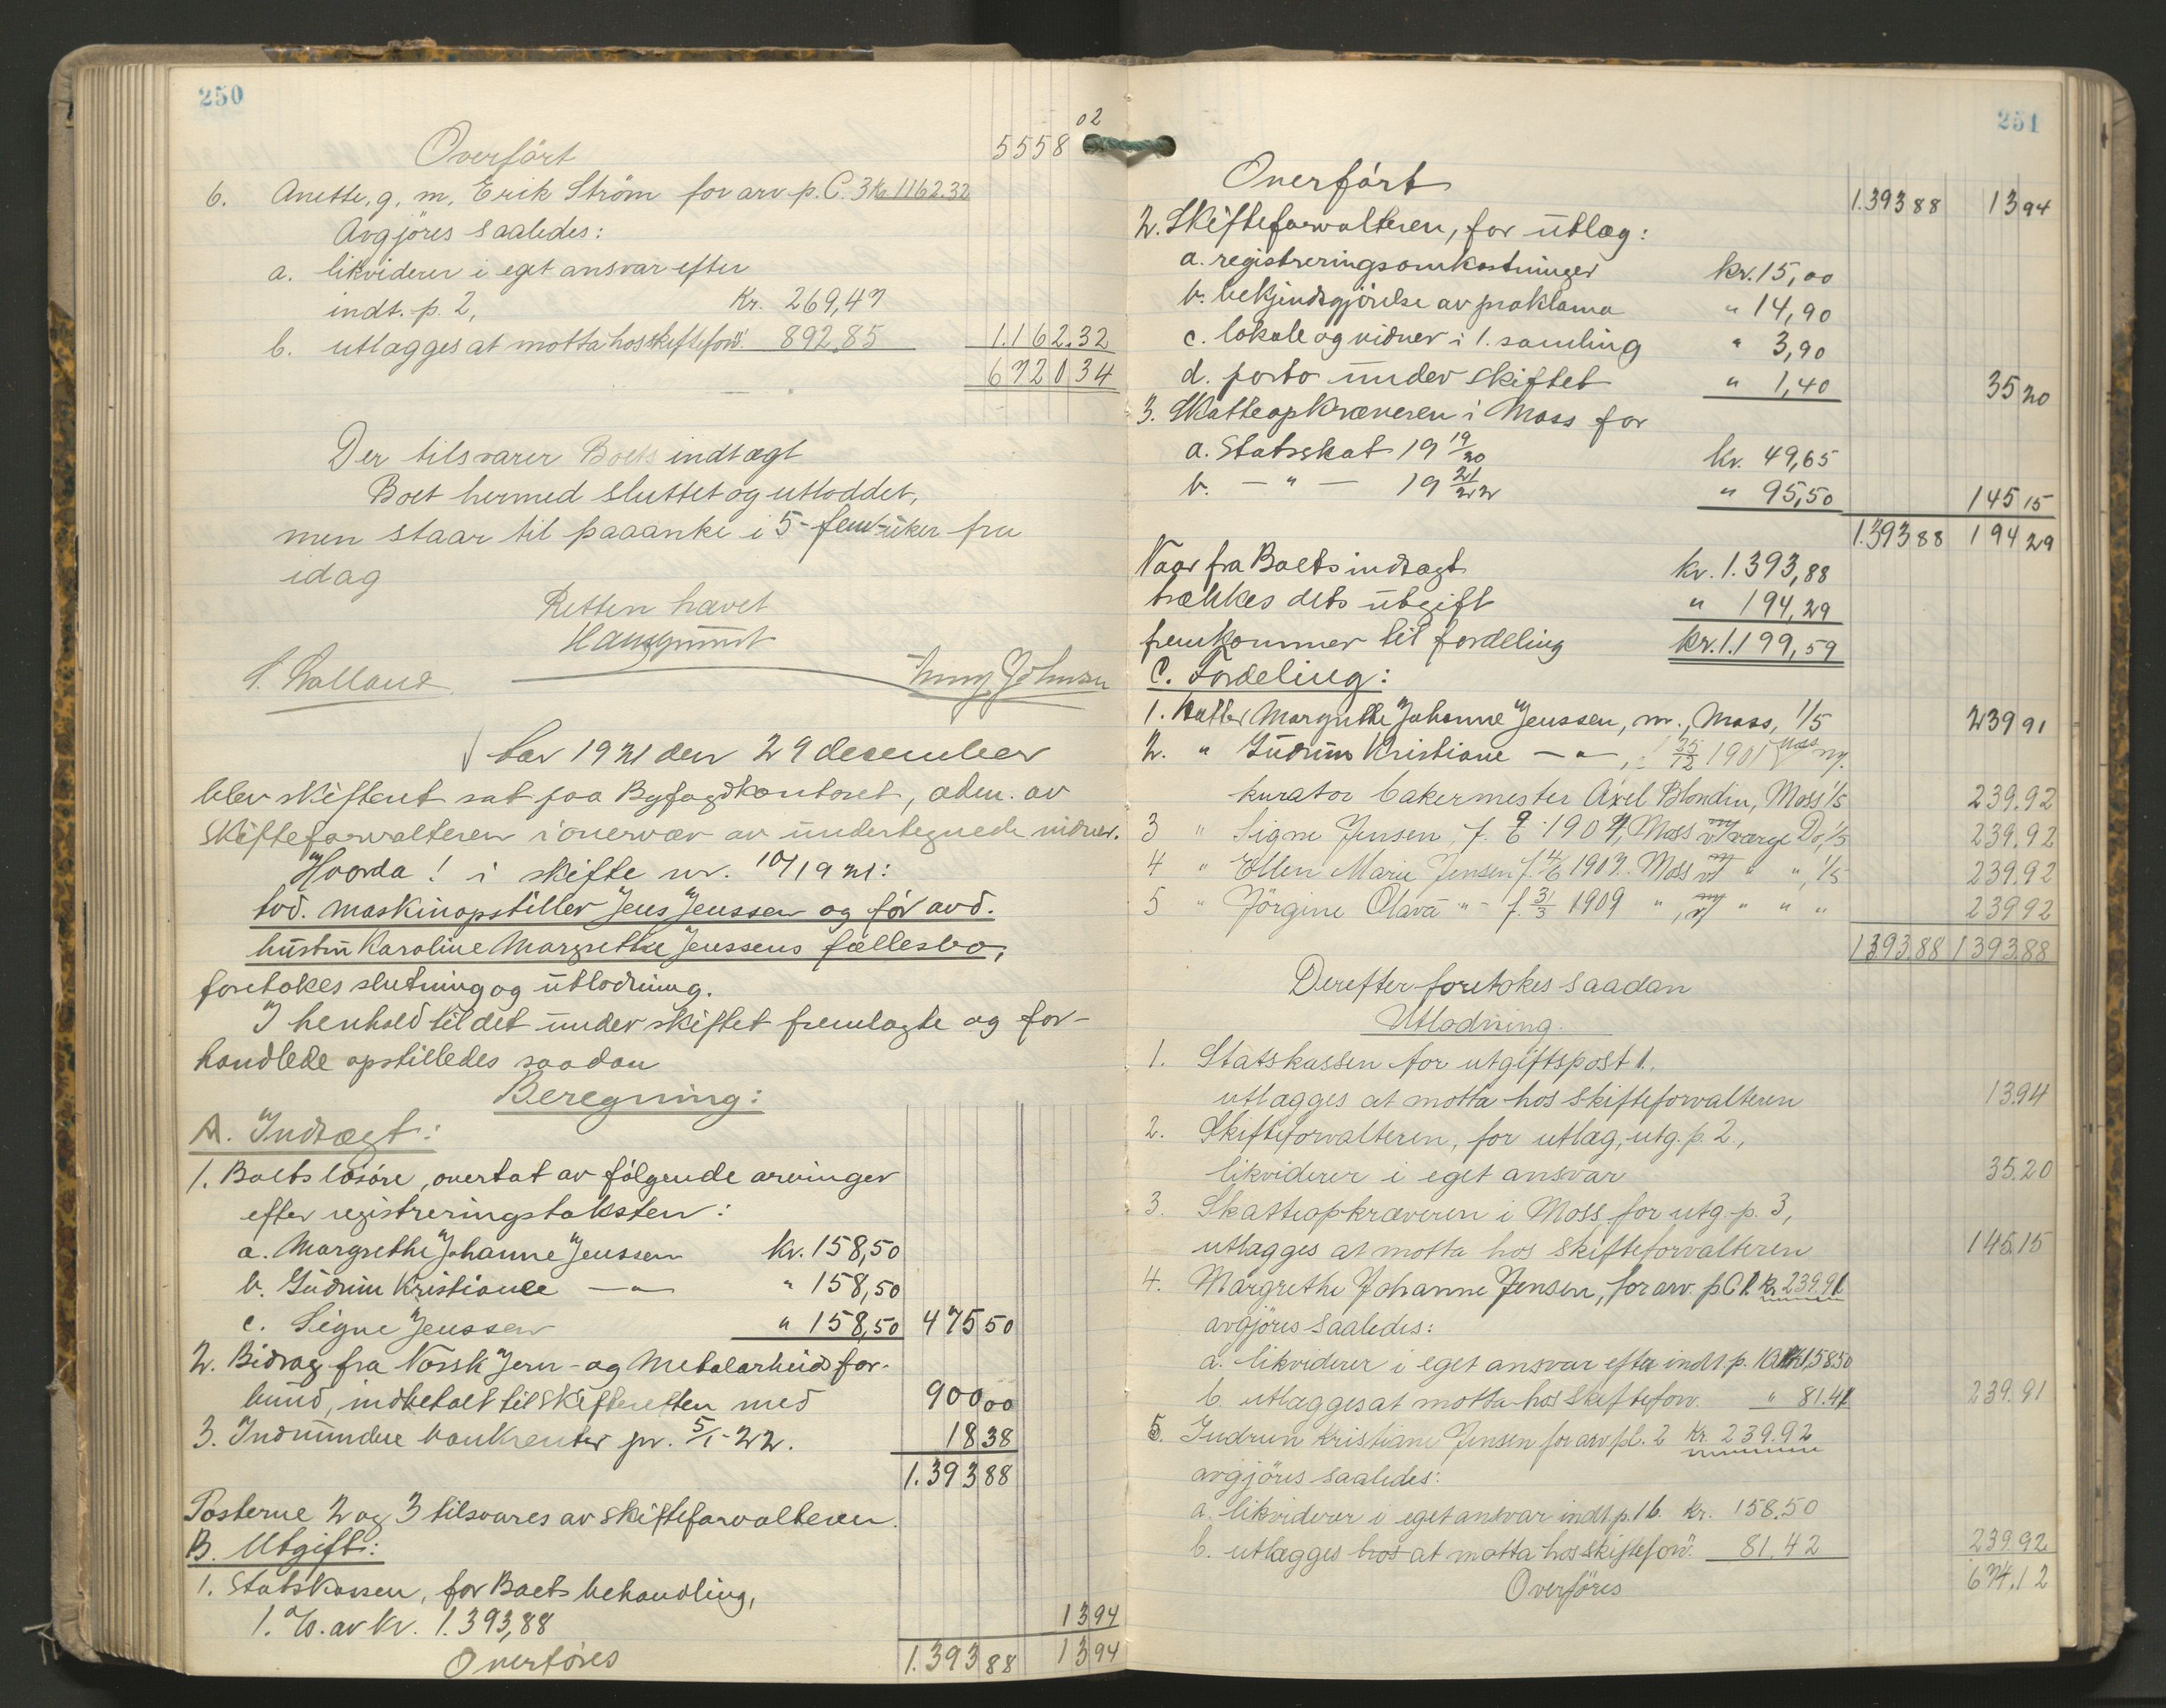 250
Overført 5558 02
6. Anette, g. m. Erik Ström for arv p. C. 3 Kr. 1162.32
Avgjöres saaledes:
a. likviderer i eget ansvar efter
indt. p. 2, Kr. 269,47
b. utlægges at motta hos skifteforv. 892,85 1.162.32
6720 34
Der tilsvarer Boets indtægt
Boet hermed sluttet og utloddet,
men staar til paaanke i 5-fem-uker fra
idag
Retten hævet
Aar 1921 den 29 december
blev skifteret sat paa Byfogdkontoret, adm. av
skifteforvalteren i overvær av undertegnede vidner.
Hvorda! i skifte nr. 10/1921:
avd. maskinopstiller Jens Jenssen og før avd.
hustru Karoline Margrethe Jenssens fællesbo,
foretokes slutning og utlodning.
I henhold til det under skiftet fremlagte og for-
handlede opstilledes saadan
Beregning:
A. Indtægt:
1. Boets løsøre, overtat av følgende arvinger
efter registreringstaksten:
a. Margrethe Johanne Jenssen kr. 158,50
b. Gudrun Kristiane — " — " 158,50
c. Signe Jenssen " 158,50 475 50
2. Bidrag fra Norsk Jern- og Metalarbeidsfor-
bund, indbetalt til skifteretten med 900 00
3. Indvundne bankrenter pr. 5/1-22. 18 38
1.393 88
Posterne 2 og 3 tilsvares av skifteforvalteren.
B. Utgift:
1. Statskassen, for Boets behandling,
1.%. av kr. 1.393,88 13 94
Overføres 1.393 88 13 94
251
Overført 1.393 88 13 94
2. Skifteforvalteren, for utlæg:
a. registreringsomkostninger kr. 15,00
b. bekjendtgjörelse av proklama " 14,90
c. lokale og vidner i 1. samling " 3,90
d. porto under skiftet " 1,40 35 20
3. Skatteopkræveren i Moss for
a. Statsskat 19 19/20 kr. 49,65
b. — " — 19 21/22 " 95,50 145 15
1.393 88 194 29
Naar fra Boets indtægt kr. 1.393,88
trækkes dets utgift " 194,29
fremkommer til fordeling kr. 1.199,59
C. Fordeling:
1. Datter Margrethe Johanne Jenssen, m., Moss, 1/5 239 91
2. " Gudrun Kristiane — " —, 1901 Moss my.
kurator bakermester Axel Blondin, Moss 1/5 239.92
3 " Signe Jensen, f. 9/6 1904, Moss værge Do, 1/5 239.92
4 " Ellen Marie Jensen f. 4/6 1907. Moss " ", 1/5 239.92
5 " Jörgine Olava " - f. 31/3 1909 ", " " " 239 92
1393.88 1393.88
Derefter foretokes saadan
Utlodning.
1. Statskassen for utgiftspost 1.,
utlægges at motta hos skifteforvalteren 13.94
2. Skifteforvalteren, for utlæg, utg. p. 2.,
likviderer i eget ansvar 35.20
3. Skatteopkræveren i Moss for utg. p. 3,
utlægges at motta hos skifteforvalteren 145.15
4. Margrethe Johanne Jensen, for arv. p C 1. kr. 239.91
avgjöres saaledes:
a. likviderer i eget ansvar efter indt. p. 1a kr. 158.50
b. utlægges at motta hos skifteforv. " 81.41 239.91
5. Gudrun Kristiane Jensen for arv p C. 2 Kr. 239.92
avgjöres saaledes:
a. likviderer i eget ansvar indt. p. 1b. Kr. 158.50
b. utlægges hos at motta hos skifteforv. 81.42 239.92
Overföres 674.12